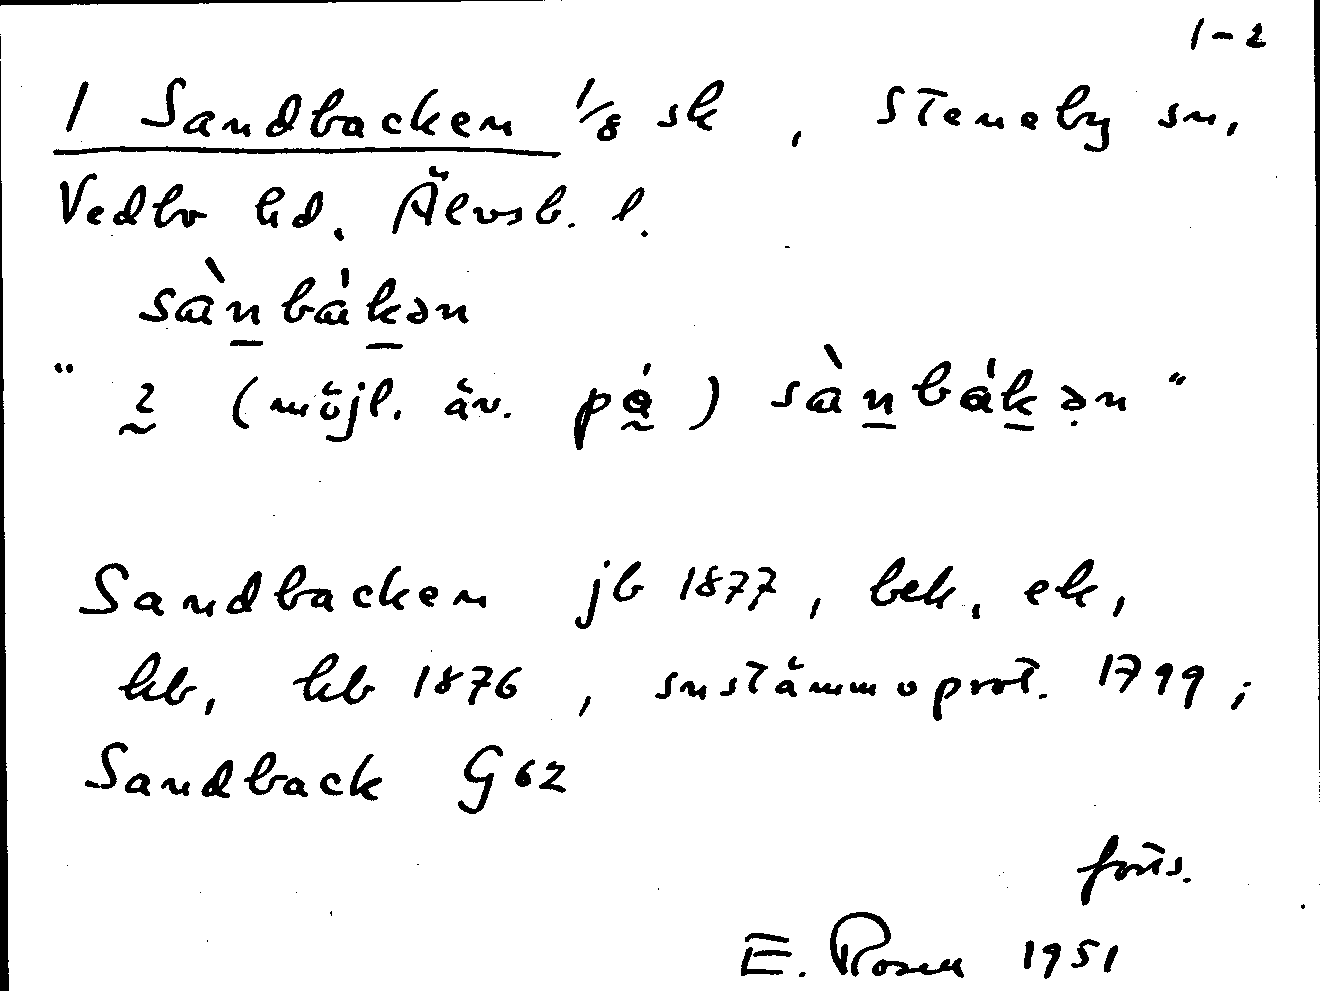 1-2
1 Sandbacken 1/8 sk, Steneby sn,
Vedbo hd, Älvsb. l.
sàn̲bák̲ən
" 2̰ (möjl. äv. på̰) sàn̲bák̲ə̣n "
Sandbacken jb 1877, bek, ek,
hb, kb 1876, snstämmoprot. 1799;
Sandback G 62
forts.
E. Rosen 1951